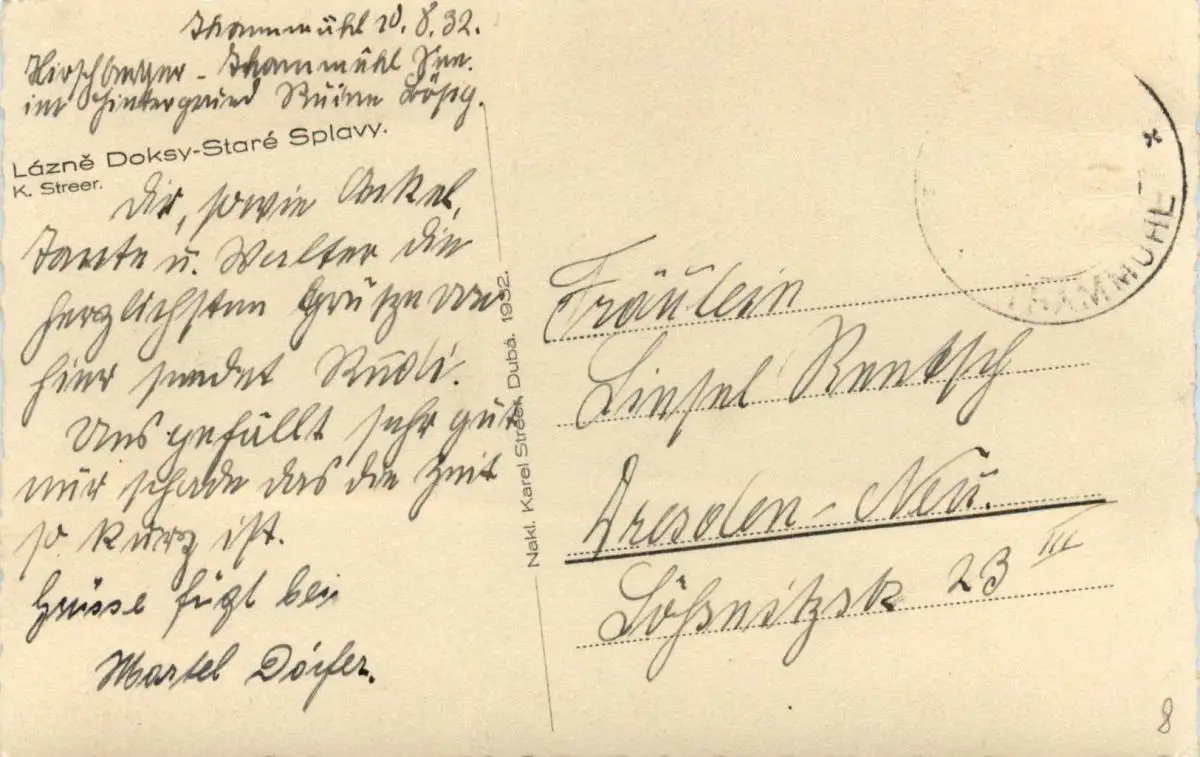 Thammühl 10.8.32.
Hirschberger - Thammühl See.
im Hintergrund Ruine Bösig.
Lázně Doksy-Staré Splavy.
K. Streer.
Dir, sowie Onkel,
Tante u. Walter die
herzlichsten Grüße von
hier sendet Rudi.
Uns gefällt sehr gut
nur schade das die Zeit
so kurz ist.
Grüsse fügt bei
Martel
Nakl. Karel Streer, Dubá. 1932.
THAMMÜHL *
Fräulein
Liesel Rentsch
Dresden-Neu.
Lößnitzstr 23 III
8